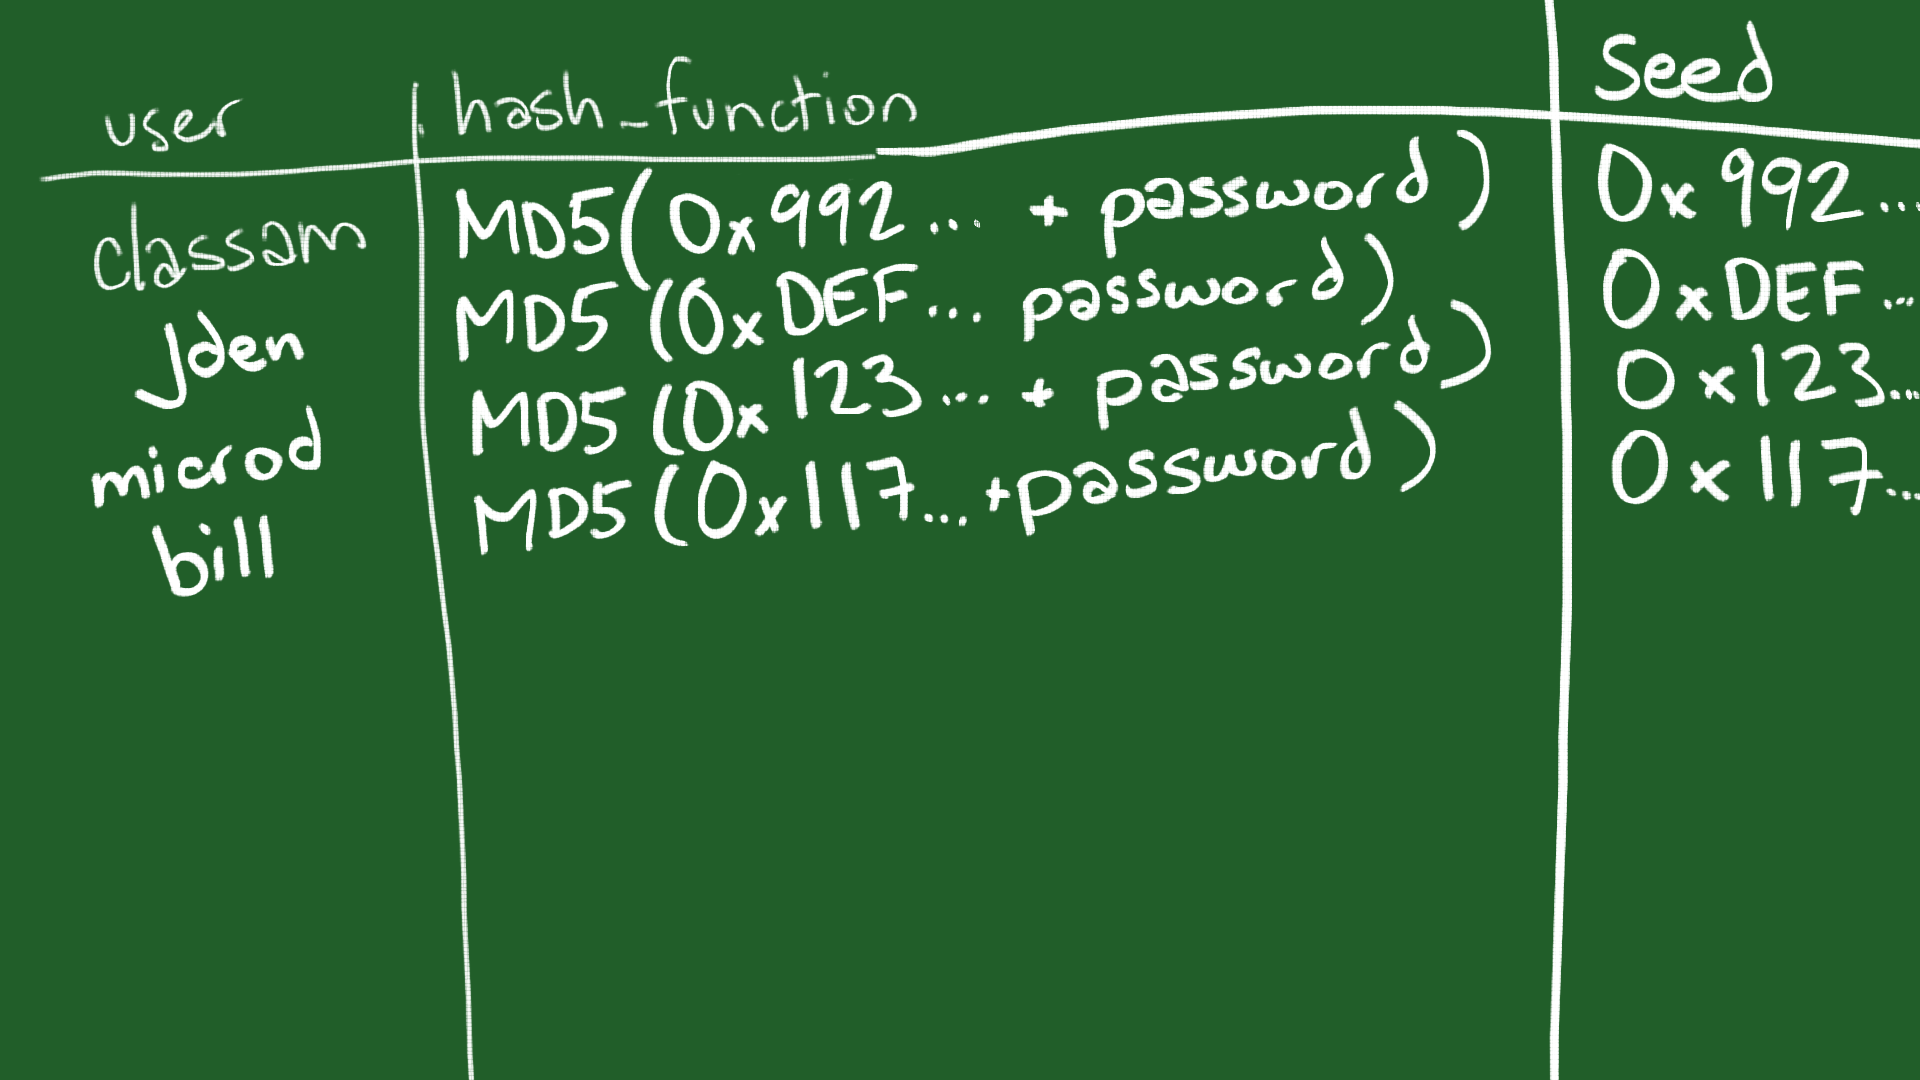 user hash_function Seed
classam MD5(0x992... + password) 0x992...
Jden MD5(0xDEF... password) 0xDEF...
microd MD5(0x123... + password) 0x123...
bill MD5(0x117... +password) 0x117...